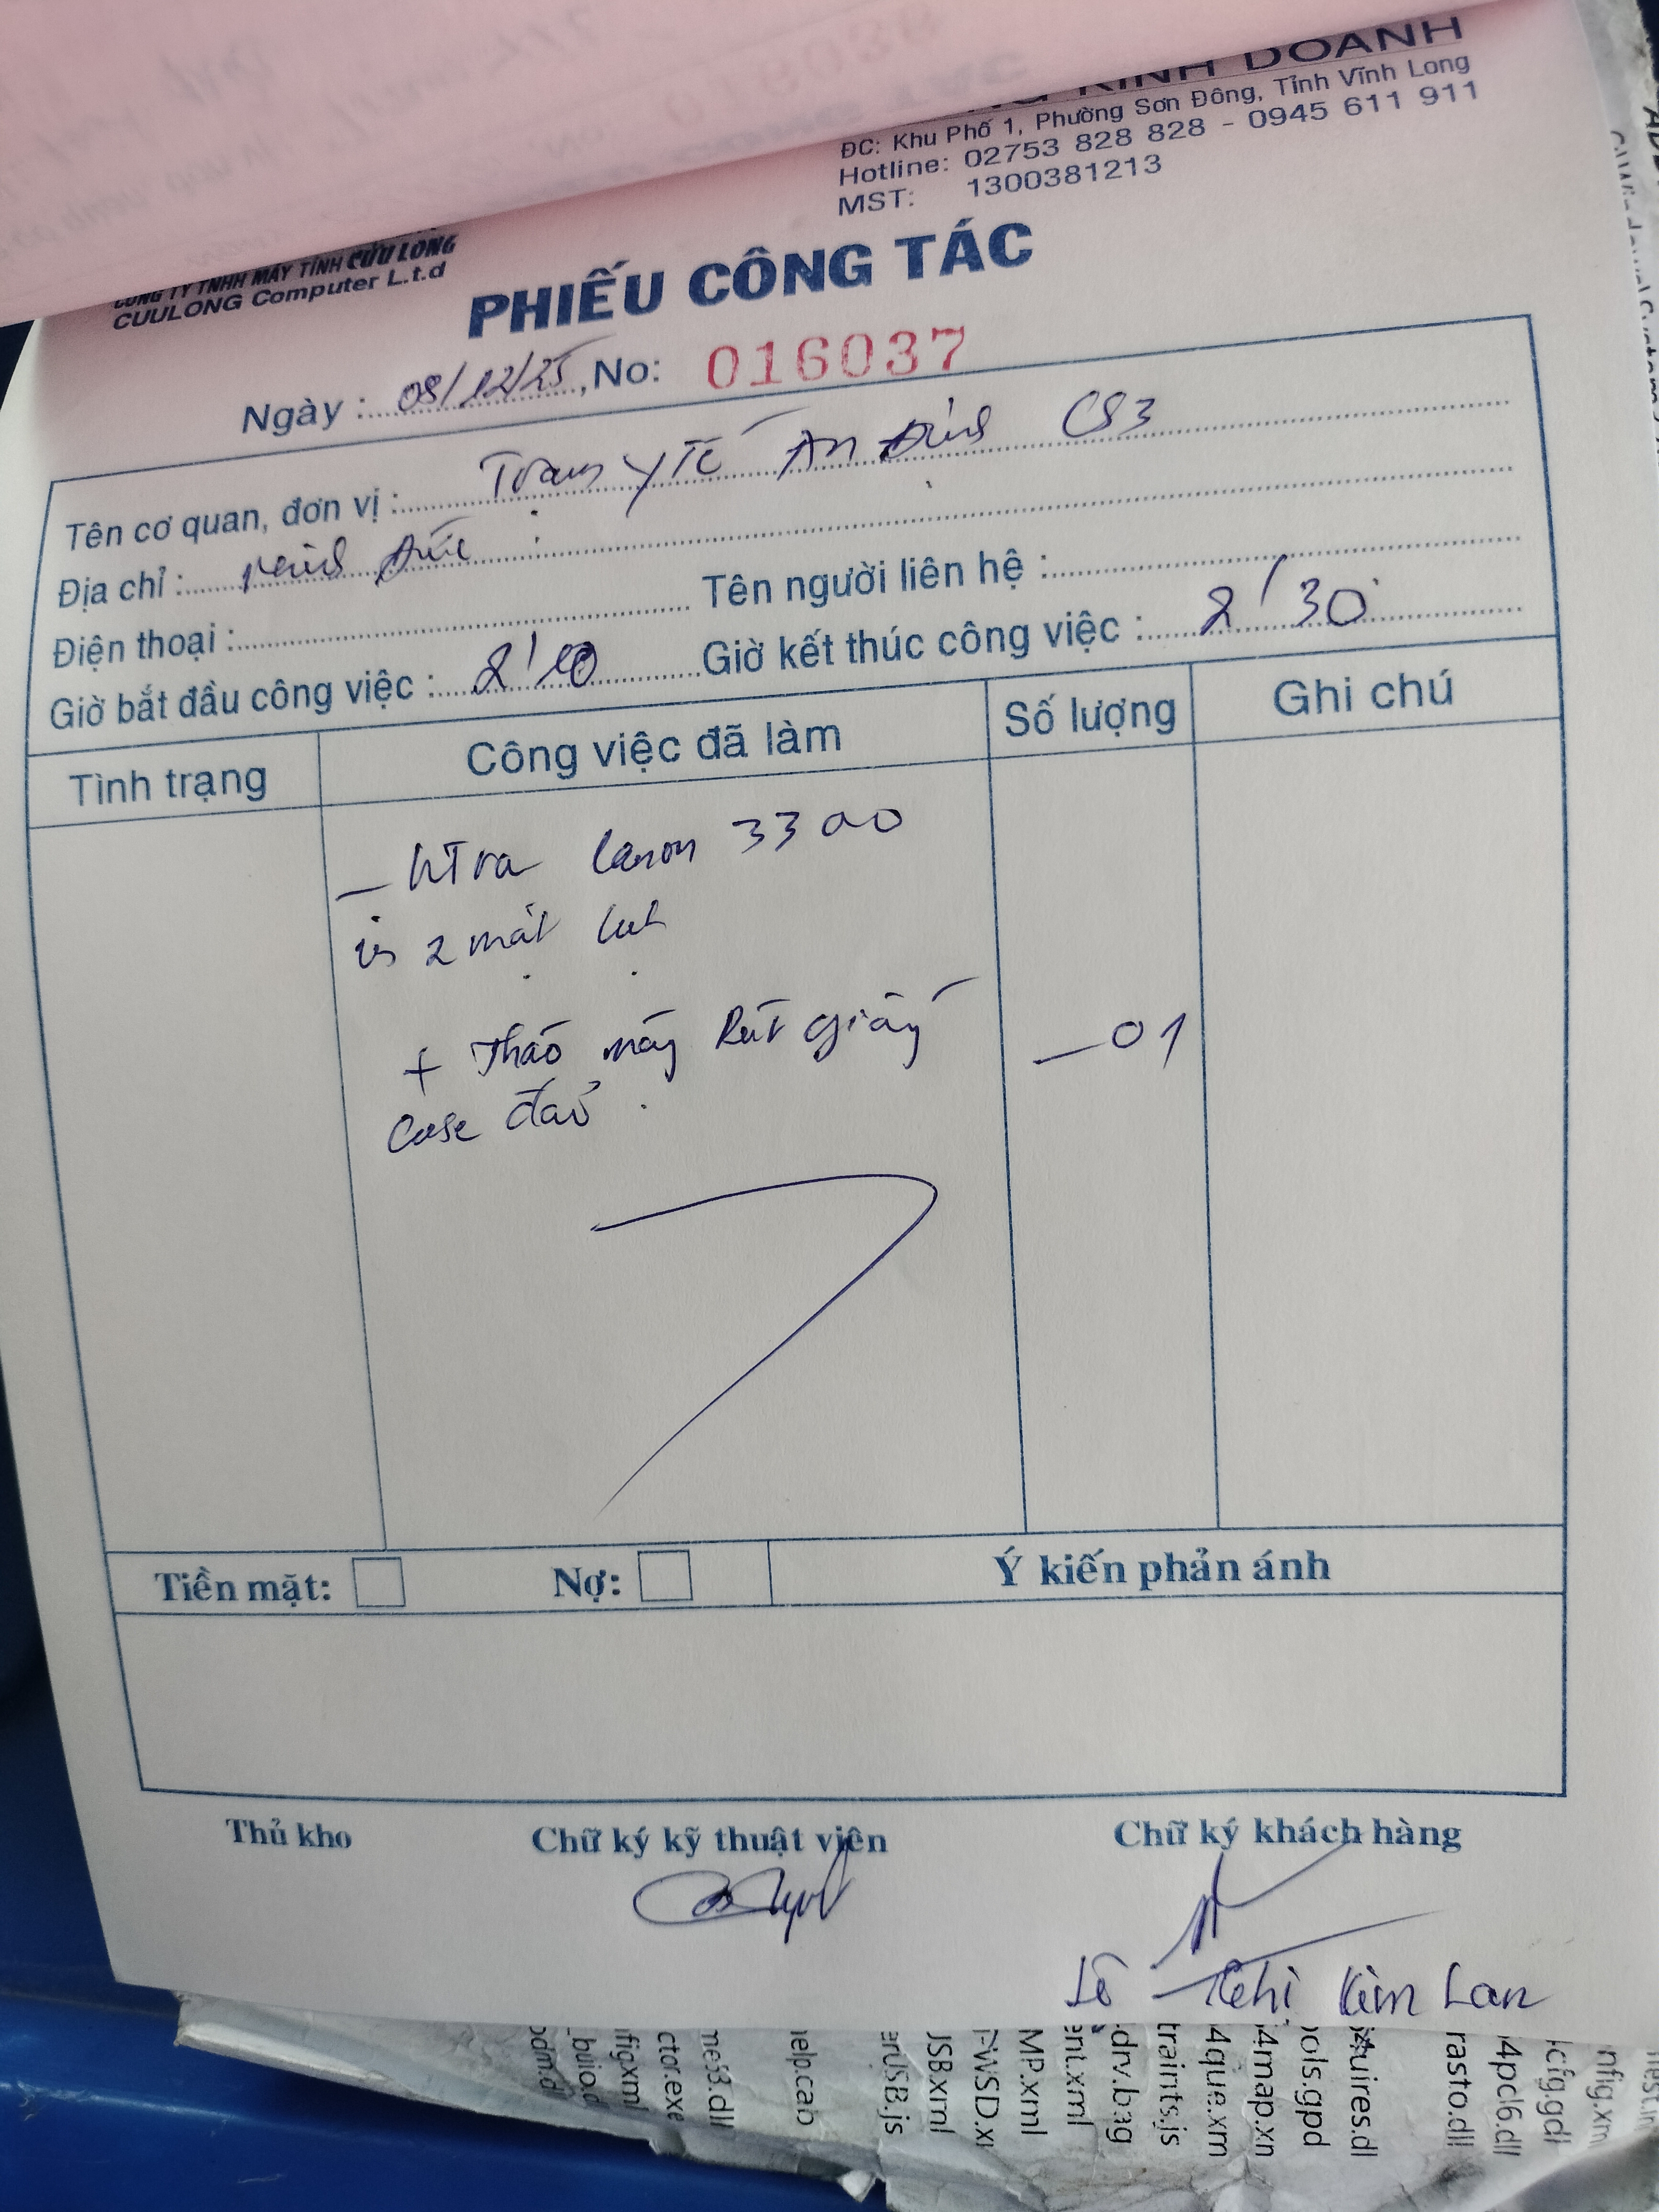 KINH DOANH
ĐC: Khu Phố 1, Phường Sơn Đông, Tỉnh Vĩnh Long
Hotline: 02753 828 828 - 0945 611 911
MST: 1300381213
CÔNG TY TNHH MÁY TÍNH CỬU LONG
CUULONG Computer L.t.d
PHIẾU CÔNG TÁC
Ngày : 08/12/25, No: 016037
Tên cơ quan, đơn vị : Trạm y Tế An Định CS3
Địa chỉ : Đức
Điện thoại : Tên người liên hệ :
Giờ bắt đầu công việc : 8'10 Giờ kết thúc công việc : 8'30
Tình trạng Công việc đã làm Số lượng Ghi chú
– KTra Canon 3300
in 2 mặt kẹt
+ Tháo máy Rút giấy – 01
case đảo
Tiền mặt: Nợ: Ý kiến phản ánh
Thủ kho Chữ ký kỹ thuật viên Chữ ký khách hàng
Lê Thị Kim Lan
me53.dll
ctor.exe
figxml
help.cab
JSB.xml
MP.xml
ent.xml
.drv.bag
traints.js
4que.xm
4map.xn
ools.gpd
rasto.dll
4pcl6.dll
nfig.xm